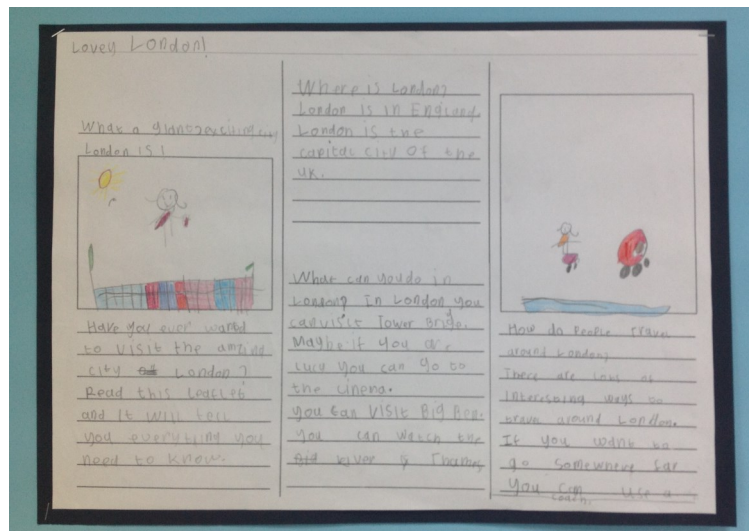 Lovely London!
What a giant exciting city
London is!
Have you ever wanted
to visit the amzing
city London?
Read this leaflet
and it will tell
you everything you
need to know.
Where is London?
London is in England.
London is the
capital city of the
UK.
What can you do in
London? In London you
can visit Tower Brige.
Maybe if you are
lucy you can go to
the cinema.
You can visit Big Ben.
You can watch the
river Thames
How do people travel
around London?
There are lots of
interesting ways to
travel around London.
If you want to
go somewhere far
You can use a
coach.